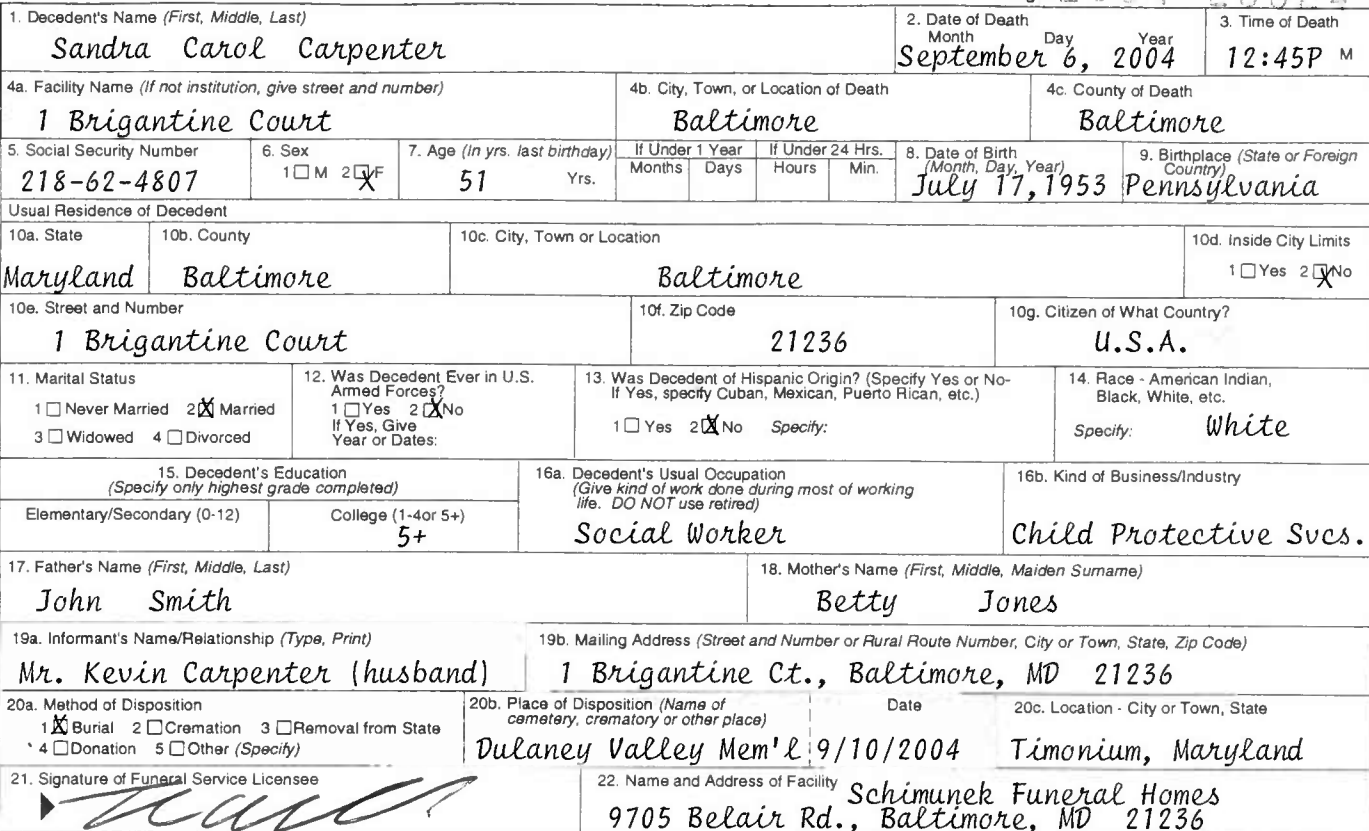 1. Decedent's Name (First, Middle, Last)
Sandra Carol Carpenter
2. Date of Death
Month Day Year
September 6, 2004
3. Time of Death
12:45P M
4a. Facility Name (If not institution, give street and number)
1 Brigantine Court
4b. City, Town, or Location of Death
Baltimore
4c. County of Death
Baltimore
5. Social Security Number
218-62-4807
6. Sex
1 ☐ M 2 ☒ F
7. Age (In yrs. last birthday)
51 Yrs.
If Under 1 Year
Months Days
If Under 24 Hrs.
Hours Min.
8. Date of Birth
(Month, Day, Year)
July 17, 1953
9. Birthplace (State or Foreign
Country)
Pennsylvania
Usual Residence of Decedent
10a. State
Maryland
10b. County
Baltimore
10c. City, Town or Location
Baltimore
10d. Inside City Limits
1 ☐ Yes 2 ☒ No
10e. Street and Number
1 Brigantine Court
10f. Zip Code
21236
10g. Citizen of What Country?
U.S.A.
11. Marital Status
1 ☐ Never Married 2 ☒ Married
3 ☐ Widowed 4 ☐ Divorced
12. Was Decedent Ever in U.S.
Armed Forces?
1 ☐ Yes 2 ☒ No
If Yes, Give
Year or Dates:
13. Was Decedent of Hispanic Origin? (Specify Yes or No-
If Yes, specify Cuban, Mexican, Puerto Rican, etc.)
1 ☐ Yes 2 ☒ No Specify:
14. Race - American Indian,
Black, White, etc.
Specify: White
15. Decedent's Education
(Specify only highest grade completed)
Elementary/Secondary (0-12)
College (1-4or 5+)
5+
16a. Decedent's Usual Occupation
(Give kind of work done during most of working
life. DO NOT use retired)
Social Worker
16b. Kind of Business/Industry
Child Protective Svcs.
17. Father's Name (First, Middle, Last)
John Smith
18. Mother's Name (First, Middle, Maiden Surname)
Betty Jones
19a. Informant's Name/Relationship (Type, Print)
Mr. Kevin Carpenter (husband)
19b. Mailing Address (Street and Number or Rural Route Number, City or Town, State, Zip Code)
1 Brigantine Ct., Baltimore, MD 21236
20a. Method of Disposition
1 ☒ Burial 2 ☐ Cremation 3 ☐ Removal from State
4 ☐ Donation 5 ☐ Other (Specify)
20b. Place of Disposition (Name of
cemetery, crematory or other place)
Dulaney Valley Mem'l
Date
9/10/2004
20c. Location - City or Town, State
Timonium, Maryland
21. Signature of Funeral Service Licensee
22. Name and Address of Facility Schimunek Funeral Homes
9705 Belair Rd., Baltimore, MD 21236